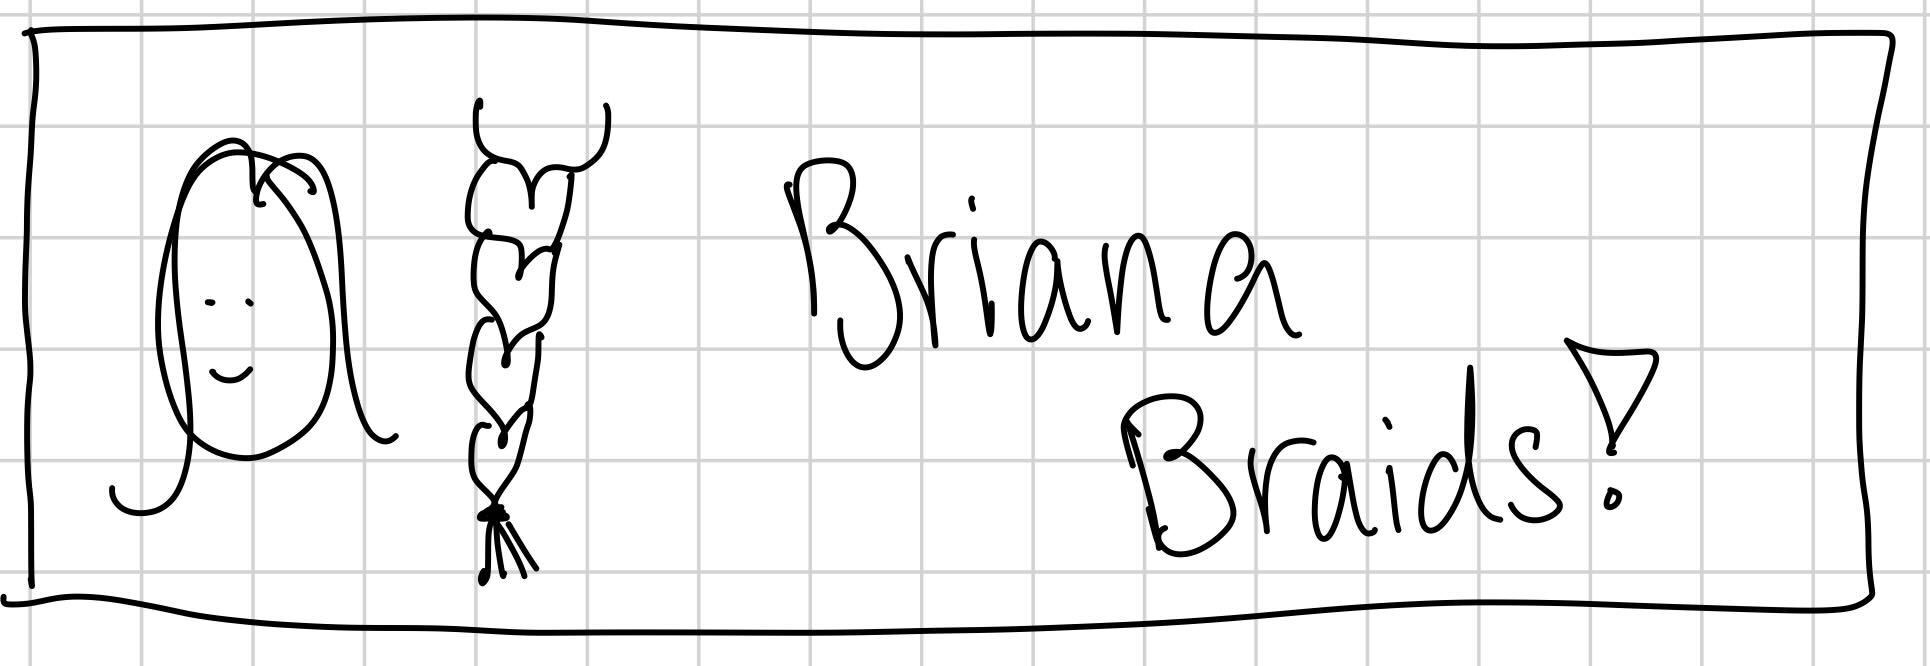 Briana
Braids!